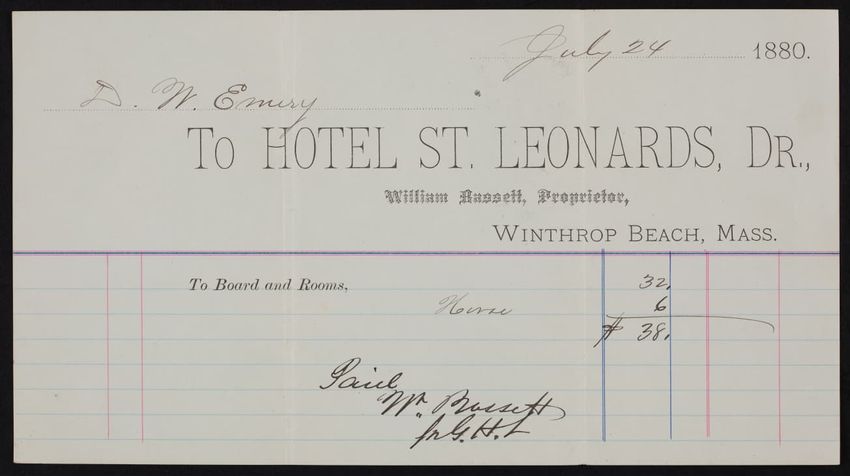 July 24 1880.
D. W. Emery
To HOTEL ST. LEONARDS, DR.,
William Bassett, Proprietor,
WINTHROP BEACH, MASS.
To Board and Rooms, 32.
Horse 6
$ 38.
Paid
Wm Bassett